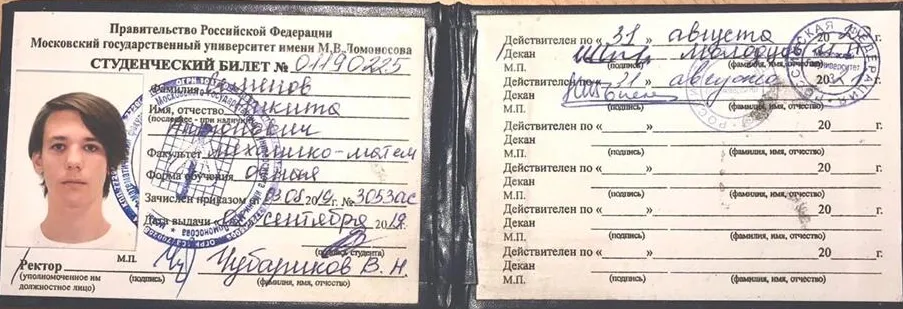 Правительство Российской Федерации
Московский государственный университет имени М.В.Ломоносова
СТУДЕНЧЕСКИЙ БИЛЕТ № 01190225
Фамилия
Имя, отчество Никита
(последнее - при наличии)
Антонович
Факультет механико-матем
Форма обучения очная
Зачислен приказом от 03.08.2019 г. № 3053ас
Дата выдачи сентября 2019
(подпись студента)
М.П.
Ректор Чубариков В. Н.
(уполномоченное им должностное лицо)
(подпись)
(фамилия, имя, отчество)
Действителен по « 31 » августа 20 г.
Декан
М.П.
(подпись)
(фамилия, имя, отчество)
Действителен по « 31 » августа 20 г.
Декан
М.П.
(подпись)
(фамилия, имя, отчество)
Действителен по « » 20 г.
Декан
М.П.
(подпись)
(фамилия, имя, отчество)
Действителен по « » 20 г.
Декан
М.П.
(подпись)
(фамилия, имя, отчество)
Действителен по « » 20 г.
Декан
М.П.
(подпись)
(фамилия, имя, отчество)
Действителен по « » 20 г.
Декан
М.П.
(подпись)
(фамилия, имя, отчество)